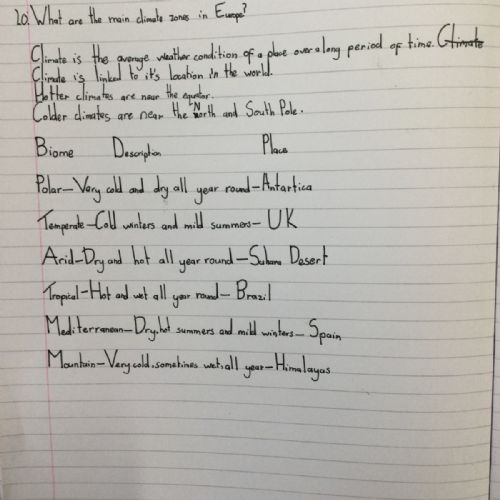 20. What are the main climate zones in Europe?
Climate is the average weather condition of a place over a long period of time. Climate
Climate is linked to it's location in the world.
Hotter climates are near the equator.
Colder climates are near the North and South Pole.
Biome Description Place
Polar-Very cold and dry all year round-Antartica
Temperate-Cold winters and mild summers-UK
Arid-Dry and hot all year round-Suhara Desert
Tropical-Hot and wet all year round-Brazil
Mediterranean-Dry, hot summers and mild winters-Spain
Mountain-Very cold, sometimes wet, all year-Himalayas